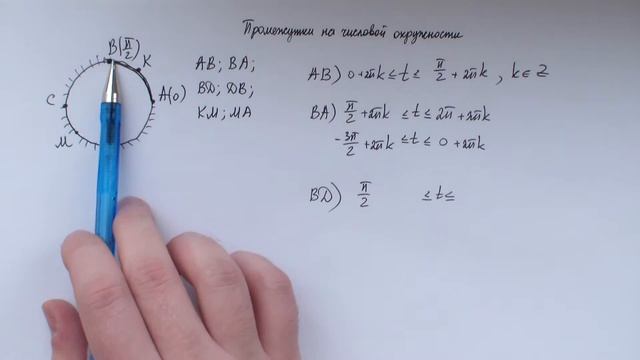 Промежутки на числовой окружности
B(π/2)
K
A(0)
C
M
AB; BA;
BD; DB;
KM; MA
AB) 0+2πk ≤ t ≤ π/2 + 2πk, k ∈ Z
BA) π/2 + 2πk ≤ t ≤ 2π + 2πk
-3π/2 + 2πk ≤ t ≤ 0 + 2πk
BD) π/2 ≤ t ≤